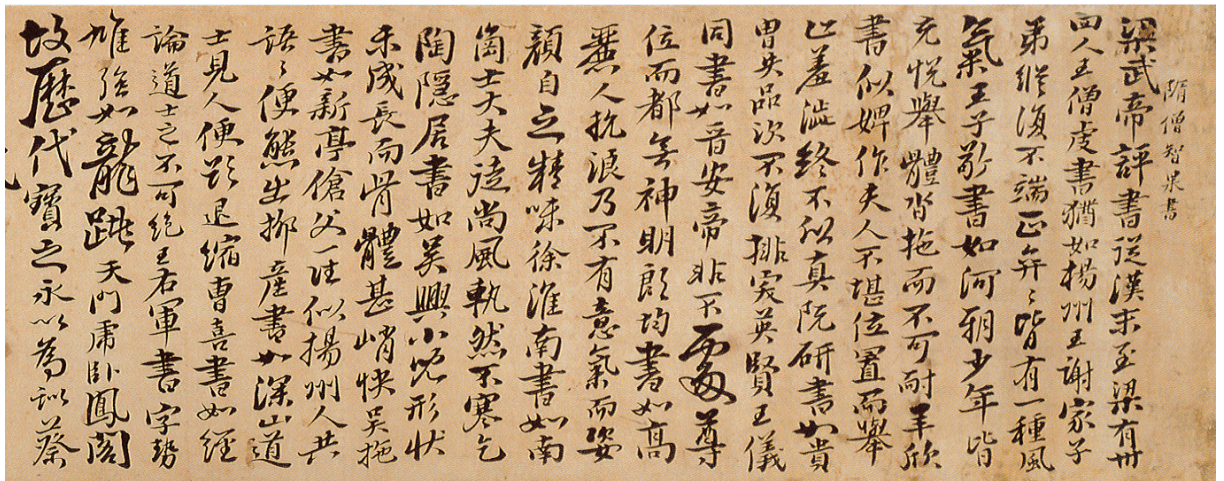 隋僧智果書
梁武帝評書從漢末至梁有卅
四人王僧虔書猶如楊州王謝家子
弟縱復不端正弈〻皆有一種風
氣王子敬書如河朔少年皆
充悅舉體沓拖而不可耐羊欣
書似婢作夫人不堪位置而舉
止羞澁終不似真阮研書如貴
胄失品次不復排突英賢王儀
同書如晉安帝非不處尊
位而都無神明殷均書如高
麗人抗浪乃不有意氣而姿
顏自乏精味徐淮南書如南
崗士大夫徒尚風軌然不寒乞
陶隱居書如吳興小兒形狀
未成長而骨體甚峭快吳施
書如新亭傖父一往似揚州人共
語〻便態出柳產書如深山道
士見人便欲退縮曹喜書如經
論道士之不可絕王右軍書字勢
雄強如龍跳天門虎臥鳳閣
故歷代寶之永以為訓蔡